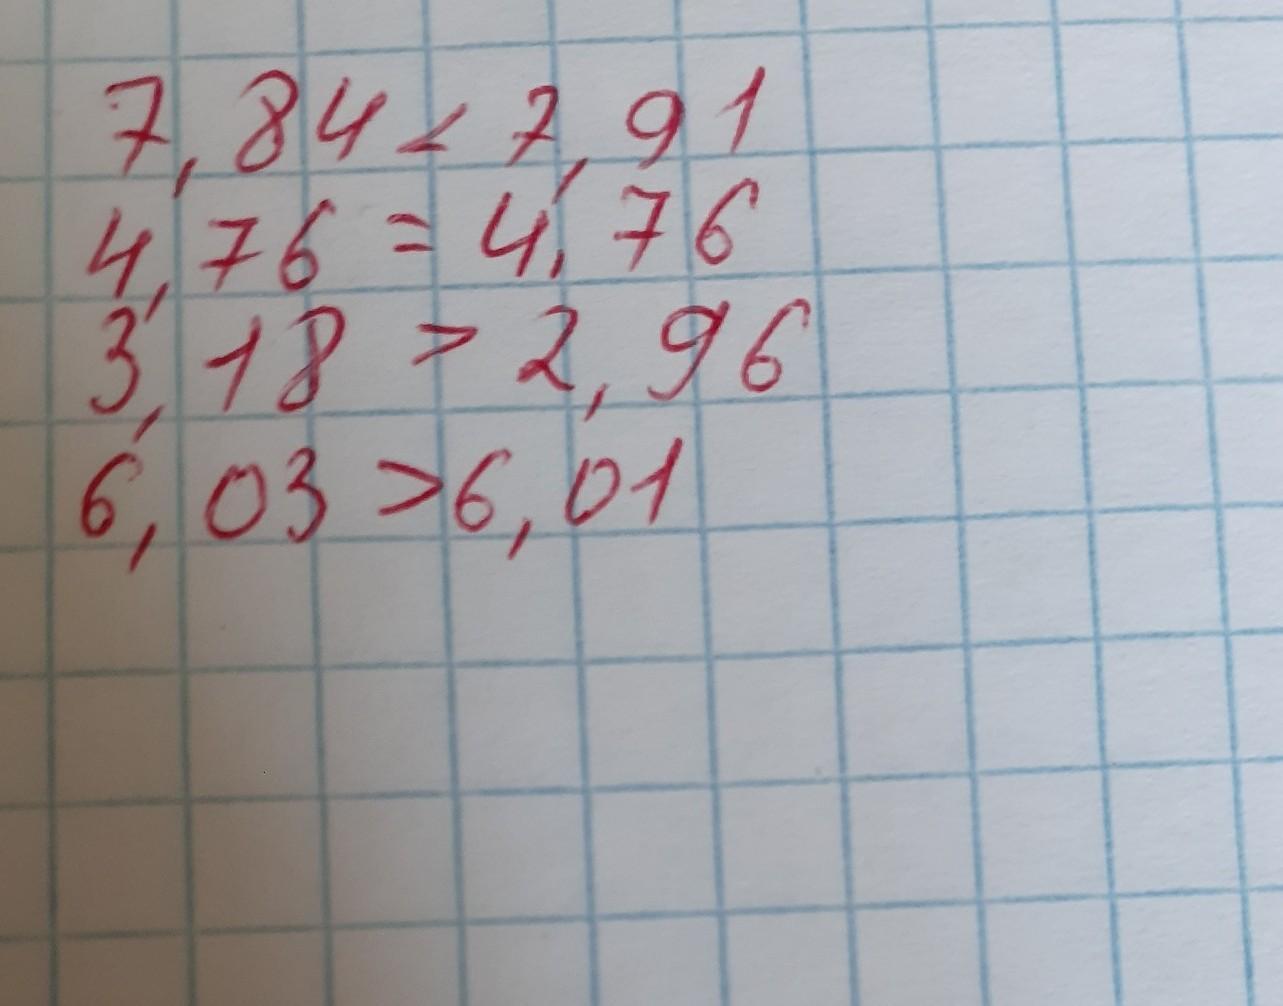 7,84 < 7,91
4,76 = 4,76
3,18 > 2,96
6,03 > 6,01